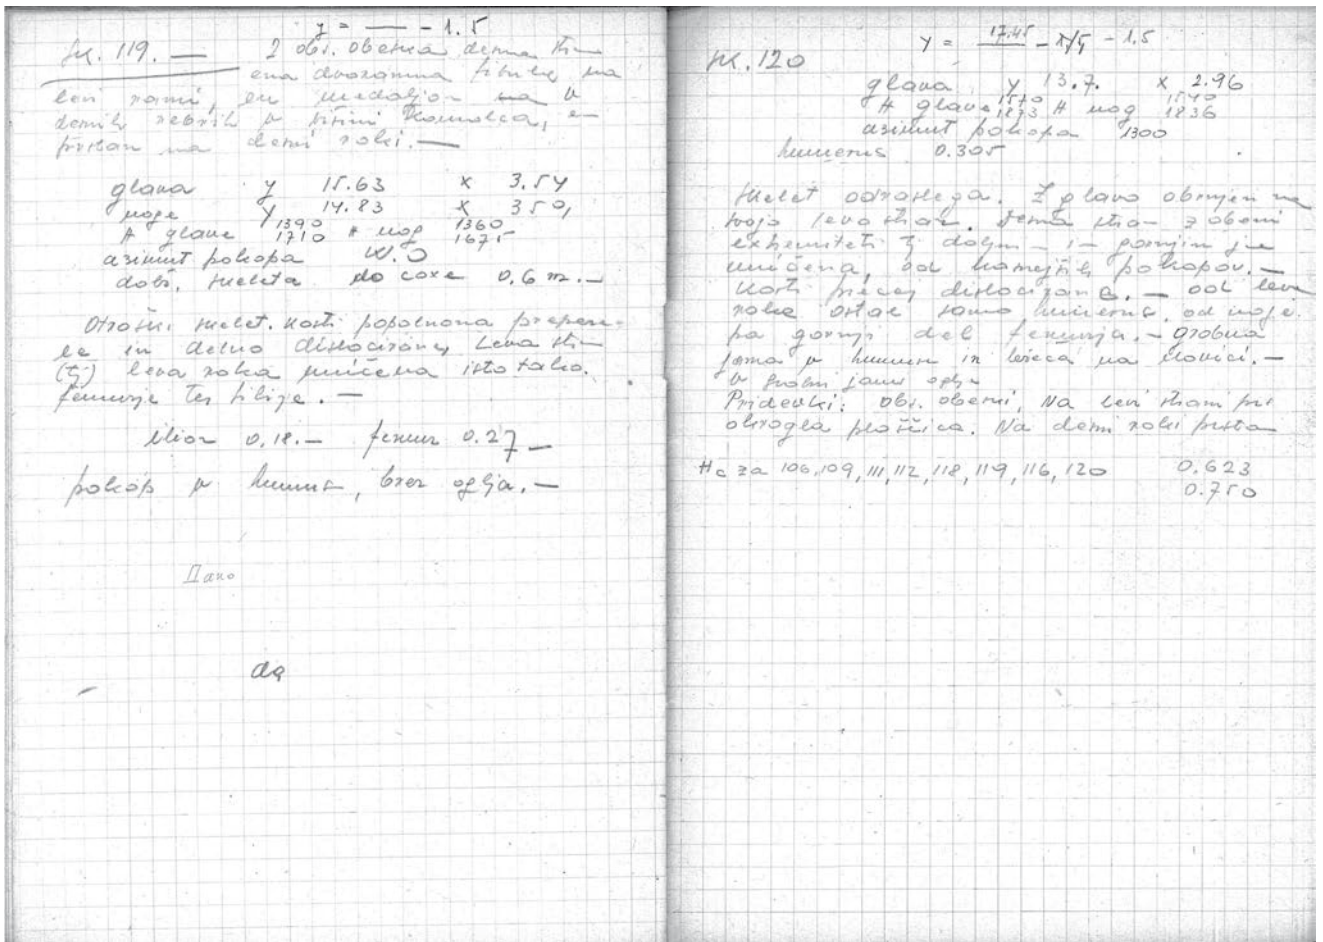 y = — - 1.5
sk. 119. — 2 obs. obenca desna stran
ena dvoramna fibula na
levi rami, en medaljon na v
desnih rebrih v višini komolca, en
prstan na desni roki. —
glava y 15.63 x 3.54
noge y 14.83 x 350,
H glave 1390 1710 H nog 1360 1675
azimut pokopa W.O
dolž. skeleta do coxe 0.6 m. —
Otroški skelet. Kosti popolnoma prepere-
le in delno dislocirane, Leva stran
(tj.) leva roka uničena isto tako.
femurje ter tibije. —
ilior 0.18. — femur 0.27 —
pokop v humus, brez oglja. —
Dano
da
y = 17.45 - 1.5
sk. 120
glava y 13.7. x 2.96
H glave 1570 1873 H nog 1540 1836
azimut pokopa 1300
humerus 0.305
Skelet odraslega. Z glavo obrnjen na
svojo levo stran. Desna stran z obemi
extremiteti tj dolnjo in gornjim je
uničena, od kasnejših pokopov. —
Kosti precej dislocirane. — od leve
roke ostal samo humerus. od noge
pa gornji del femurja. — grobna
jama v humusu in ležeča na ilovici. —
v grobni jami oglje
Pridevki: obs. obenci, Na levi strani prsi
okrogla ploščica. Na desni roki prstan
Hc za 106, 109, 111, 112, 118, 119, 116, 120 0.623
0.750